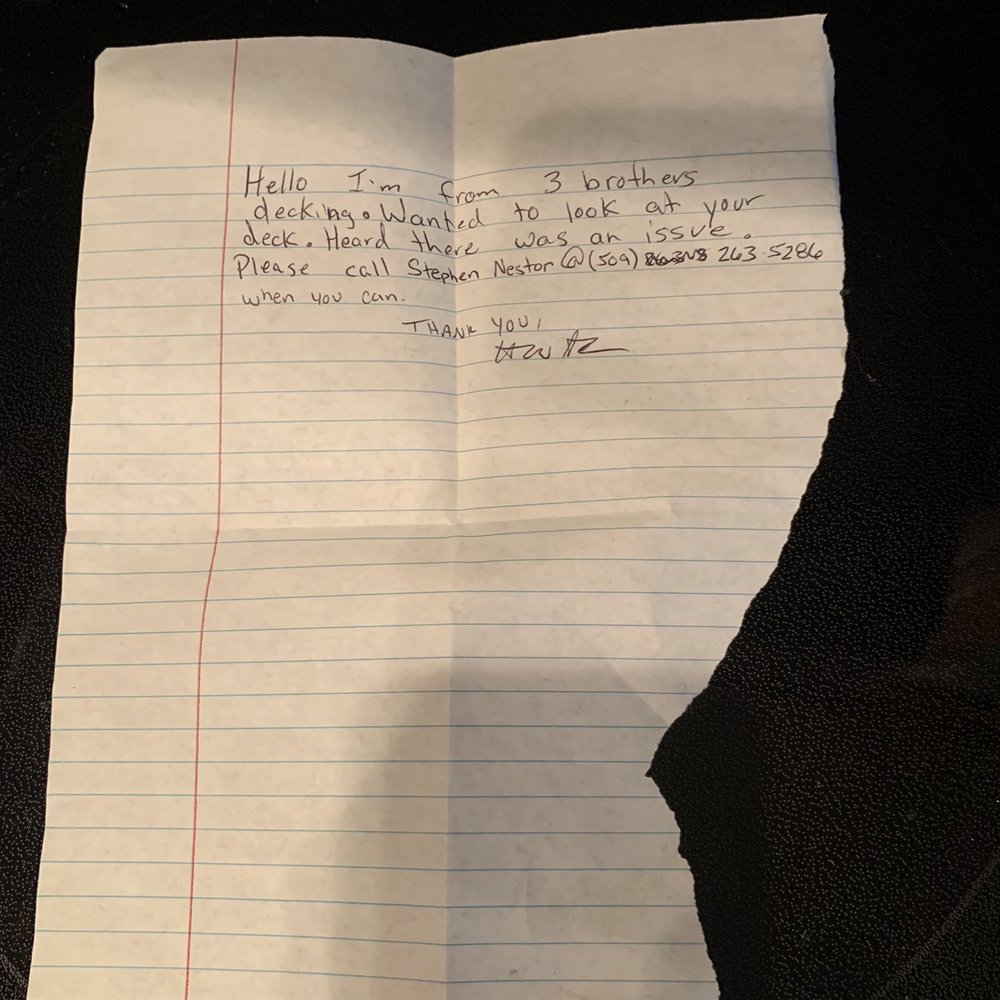 Hello I'm from 3 brothers
decking. Wanted to look at your
deck. Heard there was an issue.
Please call Stephen Nestor @ (509) 263-5286
when you can.
THANK YOU,